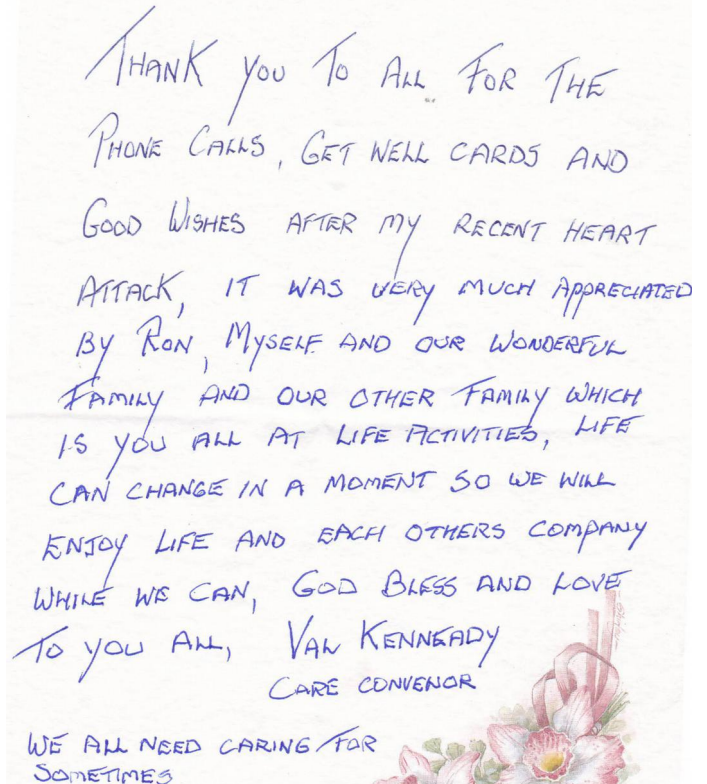 THANK YOU TO ALL FOR THE
PHONE CALLS, GET WELL CARDS AND
GOOD WISHES AFTER MY RECENT HEART
ATTACK, IT WAS VERY MUCH APPRECIATED
BY RON, MYSELF AND OUR WONDERFUL
FAMILY AND OUR OTHER FAMILY WHICH
IS YOU ALL AT LIFE ACTIVITIES, LIFE
CAN CHANGE IN A MOMENT SO WE WILL
ENJOY LIFE AND EACH OTHERS COMPANY
WHILE WE CAN, GOD BLESS AND LOVE
TO YOU ALL, VAL KENNEADY
CARE CONVENOR
WE ALL NEED CARING FOR
SOMETIMES